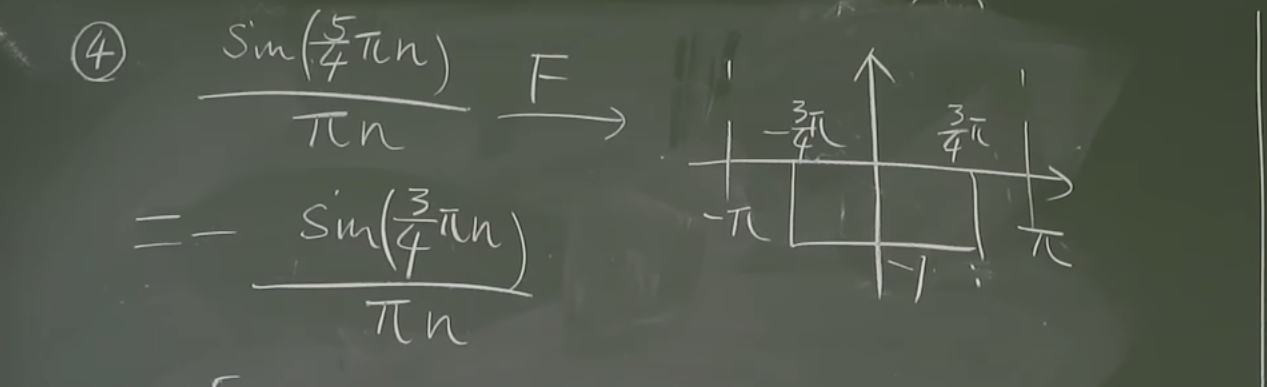 ④ sin(5/4 πn) / πn F→
= - sin(3/4 πn) / πn
-3/4 π 3/4 π
-π π
-1